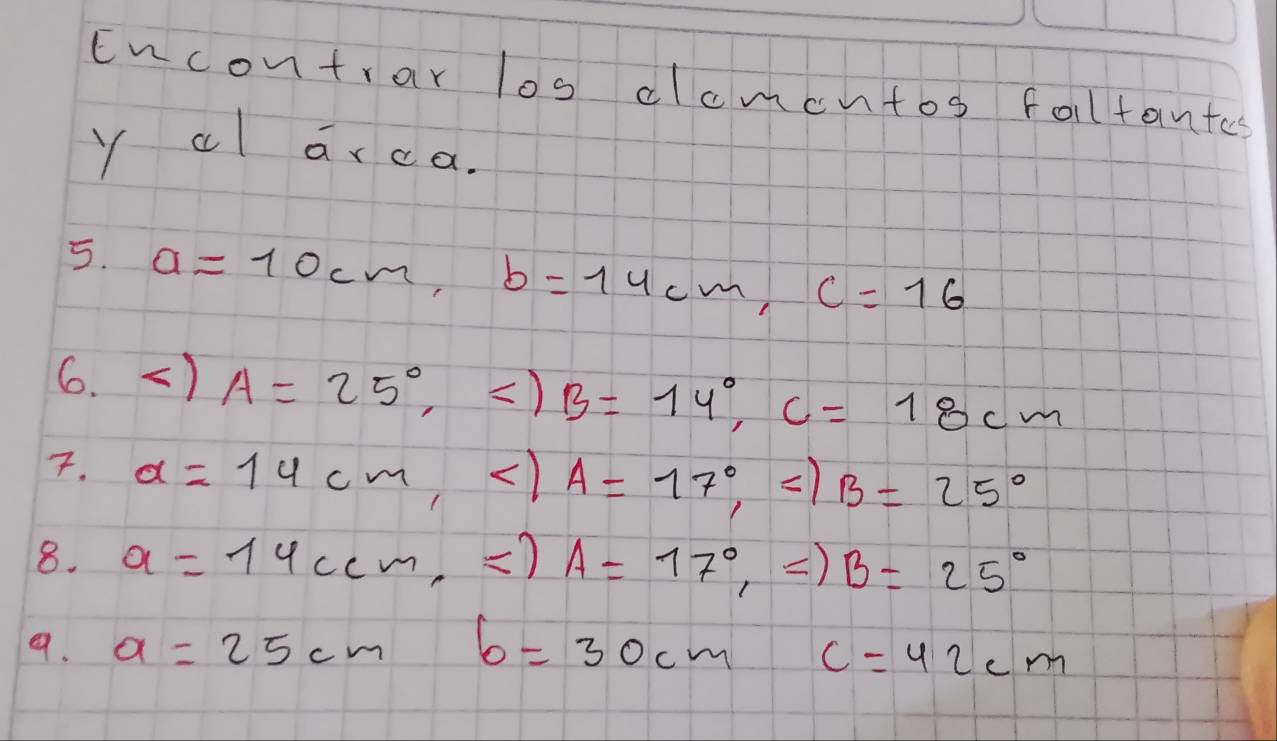 Encontrar los elementos faltantes
y el área.
5. a = 10cm, b = 14cm, c = 16
6. <) A = 25°, <) B = 14°, c = 18cm
7. a = 14 cm, <) A = 17°, <) B = 25°
8. a = 14ccm, <) A = 17°, <) B = 25°
9. a = 25cm b = 30cm c = 42cm